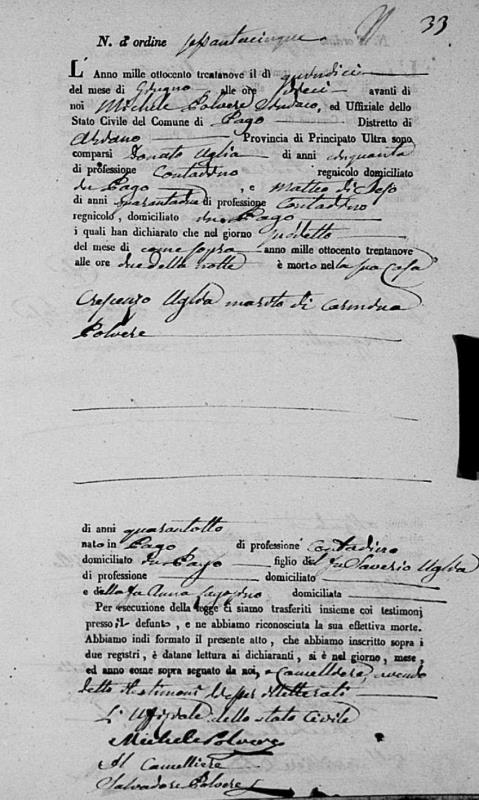 33
N. d'ordine sessantacinque
L'Anno mille ottocento trentanove il dì quindici
del mese di Giugno alle ore dieci avanti di
noi Michele Polvere Sindaco, ed Uffiziale dello
Stato Civile del Comune di Pago Distretto di
Ariano Provincia di Principato Ultra sono
comparsi Donato Uglia di anni cinquanta
di professione Contadino regnicolo domiciliato
in Pago, e Matteo di
di anni quarantadue di professione Contadino
regnicolo, domiciliato in Pago
i quali han dichiarato che nel giorno
del mese di come sopra anno mille ottocento trentanove
alle ore due della notte è morto nella sua Casa
Crescenzo Uglia marito di Carmina
Polvere
di anni quarantotto
nato in Pago di professione Contadino
domiciliato in Pago figlio del fu Saverio Uglia
di professione domiciliato
e della fu Anna domiciliata
Per esecuzione della legge ci siamo trasferiti insieme coi testimonj
presso il defunto, e ne abbiamo riconosciuta la sua effettiva morte.
Abbiamo indi formato il presente atto, che abbiamo inscritto sopra i
due registri, è datane lettura ai dichiaranti, si è nel giorno, mese,
ed anno come sopra segnato da noi, e Cancelliere, avendo
detto i testimoni illetterati
L'Uffiziale dello stato Civile
Michele Polvere
Il Cancelliere
Salvadore Polvere